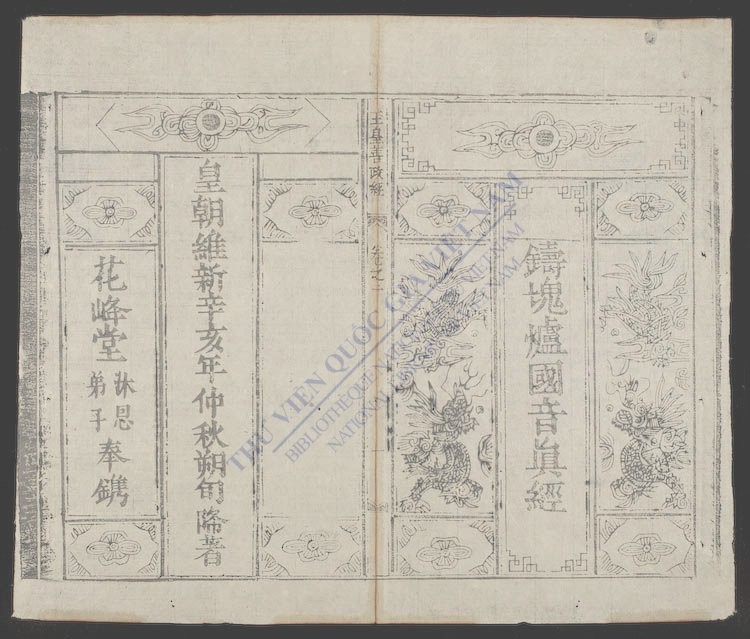 鑄塊爐國音眞經
玉皇善政經
卷之一
皇朝維新辛亥年仲秋朔旬降著
花峰堂沐恩弟子奉鐫
THƯ VIỆN QUỐC GIA VIỆT NAM
BIBLIOTHÈQUE NATIONALE DU VIETNAM
NATIONAL LIBRARY OF VIET NAM